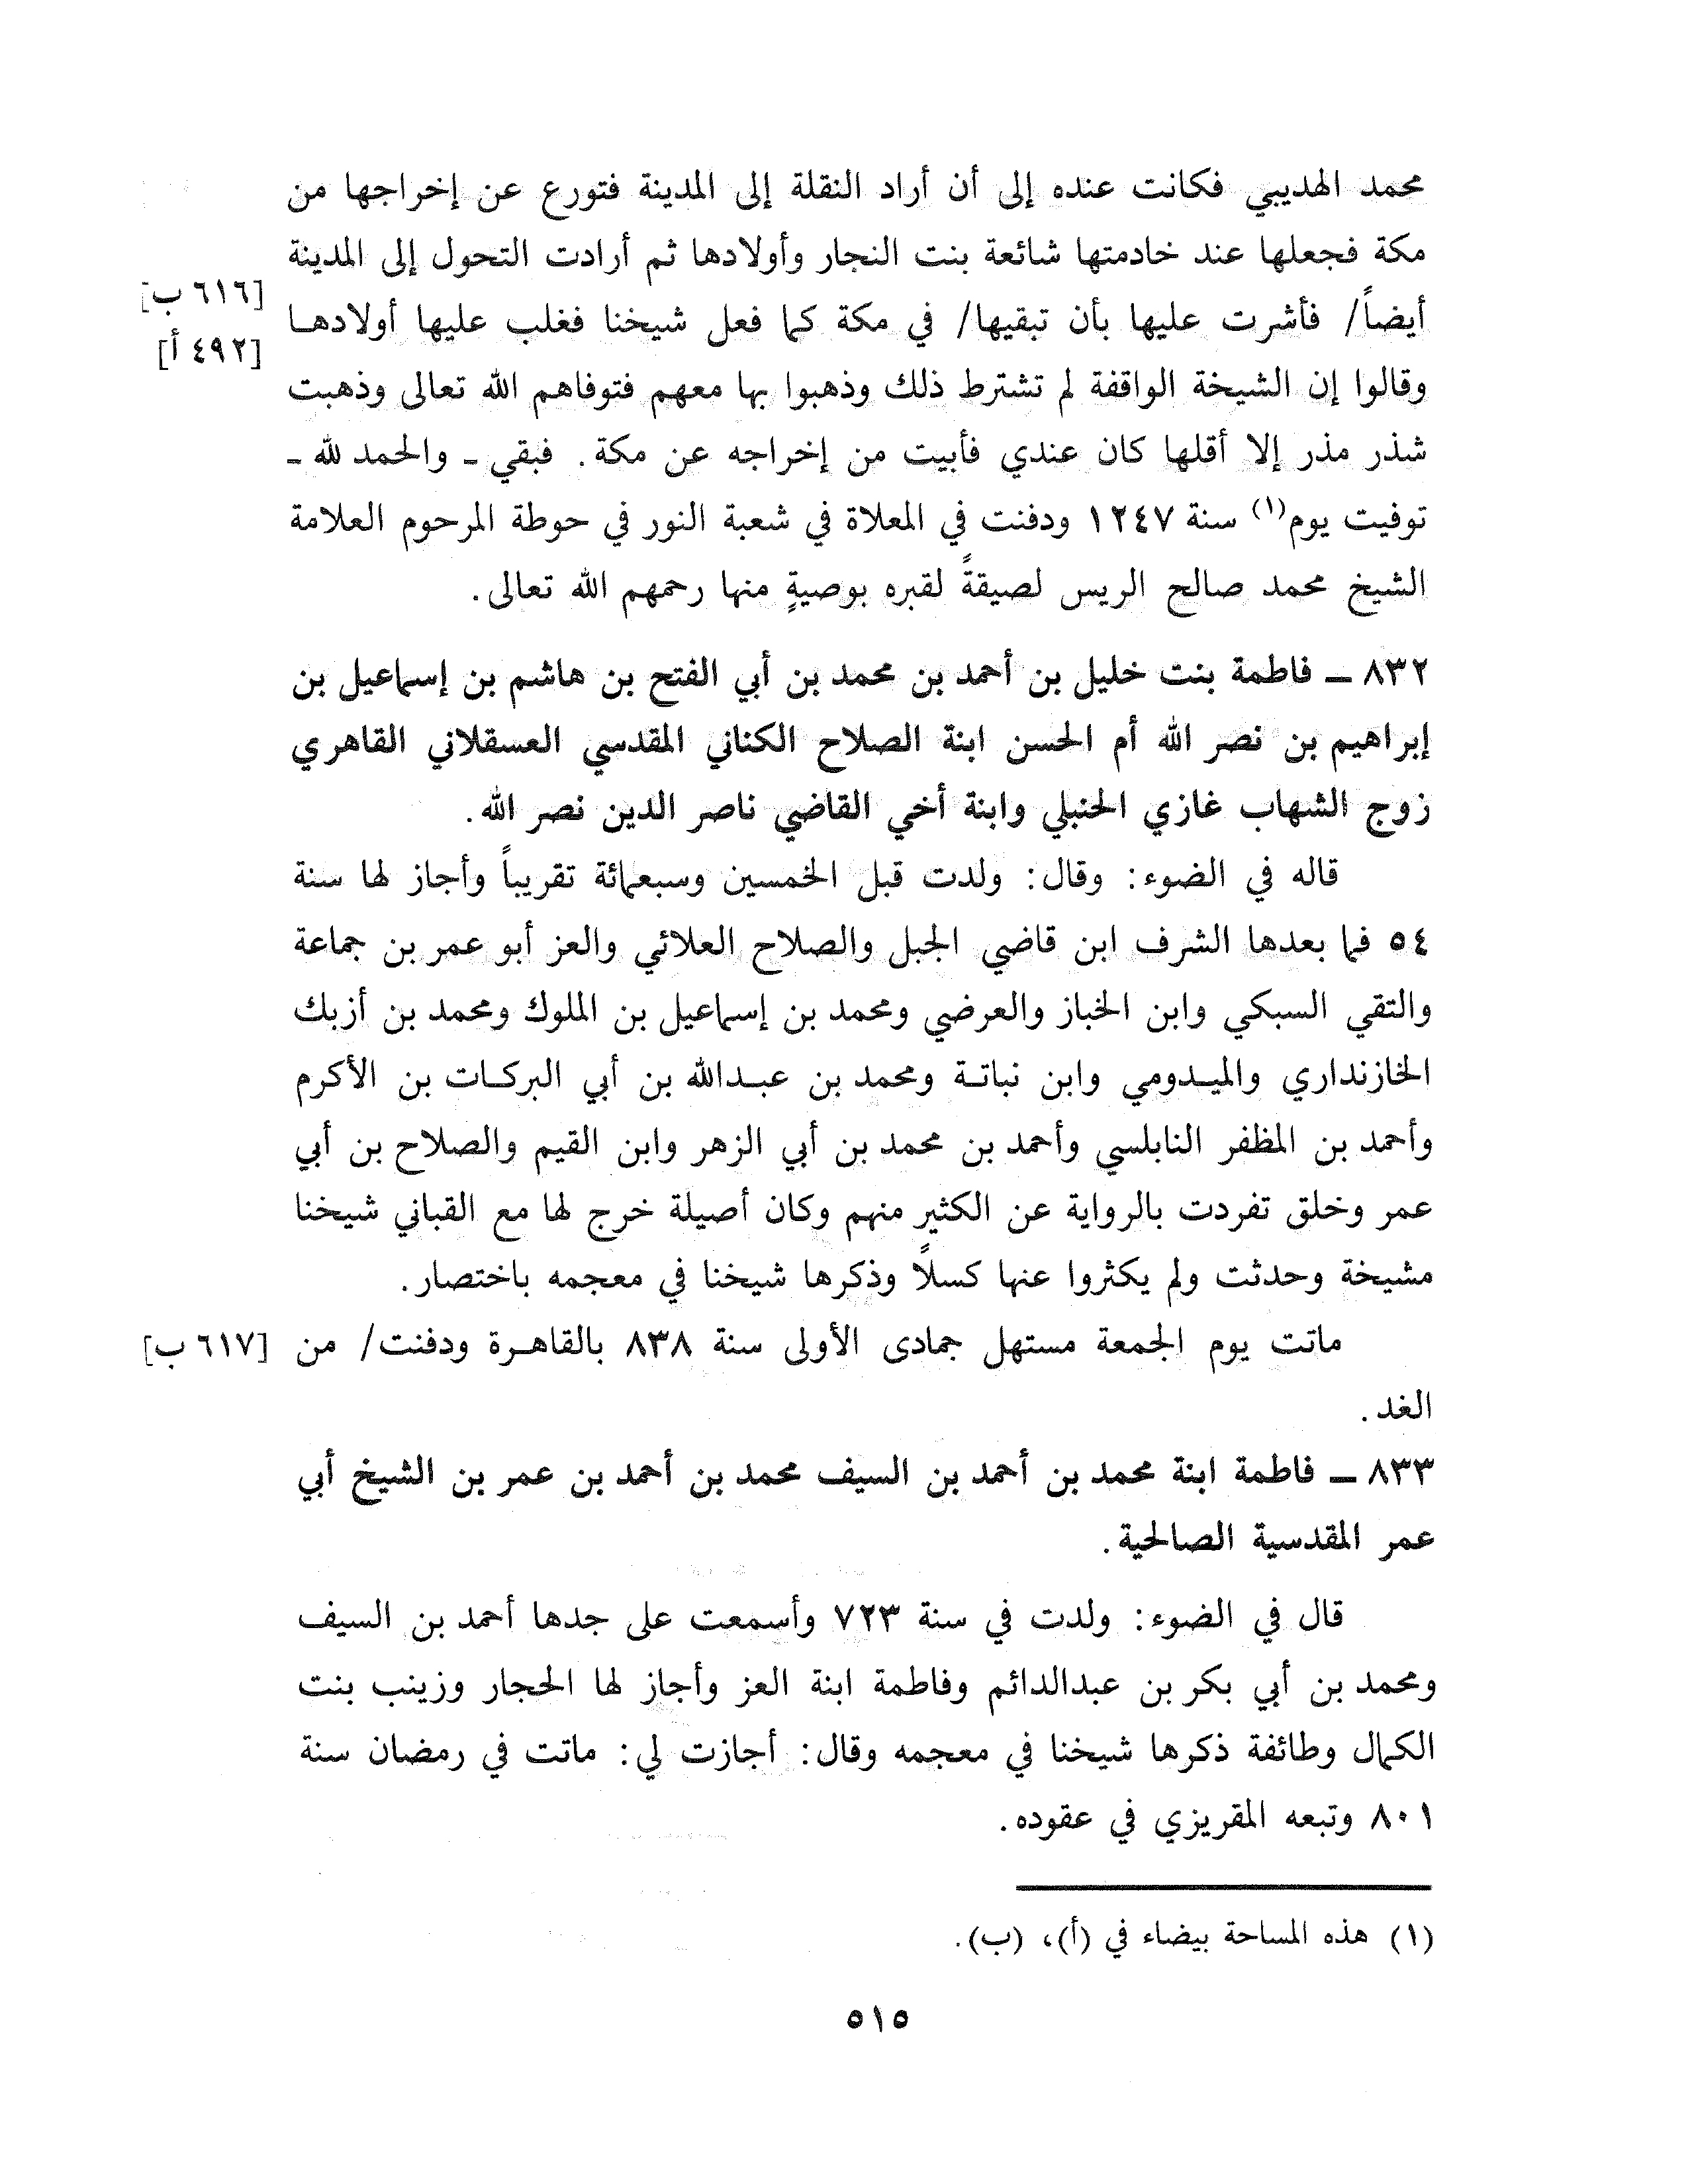 محمد الهديبي فكانت عنده إلى أن أراد النقلة إلى المدينة فتورع عن إخراجها من
مكة فجعلها عند خادمتها شائعة بنت النجار وأولادها ثم أرادت التحول إلى المدينة
[٦١٦ ب]
أيضاً/ فأشرت عليها بأن تبقيها/ في مكة كما فعل شيخنا فغلب عليها أولادهـا
[٤٩٢ أ]
وقالوا إن الشيخة الواقفة لم تشترط ذلك وذهبوا بها معهم فتوفاهم الله تعالى وذهبت
شذر مذر إلا أقلها كان عندي فأبيت من إخراجه عن مكة. فبقي ـ والحمد لله ـ
توفيت يوم(١) سنة ١٢٤٧ ودفنت في المعلاة في شعبة النور في حوطة المرحوم العلامة
الشيخ محمد صالح الريس لصيقةً لقبره بوصيةٍ منها رحمهم الله تعالى.
٨٣٢ ــ فاطمة بنت خليل بن أحمد بن محمد بن أبي الفتح بن هاشم بن إسماعيل بن
إبراهيم بن نصر الله أم الحسن ابنة الصلاح الكناني المقدسي العسقلاني القاهري
زوج الشهاب غازي الحنبلي وابنة أخي القاضي ناصر الدين نصر الله.
قاله في الضوء: وقال: ولدت قبل الخمسين وسبعمائة تقريباً وأجاز لها سنة
٥٤ فما بعدها الشرف ابن قاضي الجبل والصلاح العلائي والعز أبو عمر بن جماعة
والتقي السبكي وابن الخباز والعرضي ومحمد بن إسماعيل بن الملوك ومحمد بن أزبك
الخازنداري والميـدومي وابن نباتـة ومحمد بن عبـدالله بن أبي البركـات بن الأكرم
وأحمد بن المظفر النابلسي وأحمد بن محمد بن أبي الزهر وابن القيم والصلاح بن أبي
عمر وخلق تفردت بالرواية عن الكثير منهم وكان أصيلة خرج لها مع القباني شيخنا
مشيخة وحدثت ولم يكثروا عنها كسلاً وذكرها شيخنا في معجمه باختصار.
ماتت يوم الجمعة مستهل جمادى الأولى سنة ٨٣٨ بالقاهـرة ودفنت/ من [٦١٧ ب]
الغد.
٨٣٣ ــ فاطمة ابنة محمد بن أحمد بن السيف محمد بن أحمد بن عمر بن الشيخ أبي
عمر المقدسية الصالحية.
قال في الضوء: ولدت في سنة ٧٢٣ وأسمعت على جدها أحمد بن السيف
ومحمد بن أبي بكر بن عبدالدائم وفاطمة ابنة العز وأجاز لها الحجار وزينب بنت
الكمال وطائفة ذكرها شيخنا في معجمه وقال: أجازت لي: ماتت في رمضان سنة
٨٠١ وتبعه المقريزي في عقوده.
(١) هذه المساحة بيضاء في (أ)، (ب).
٥١٥